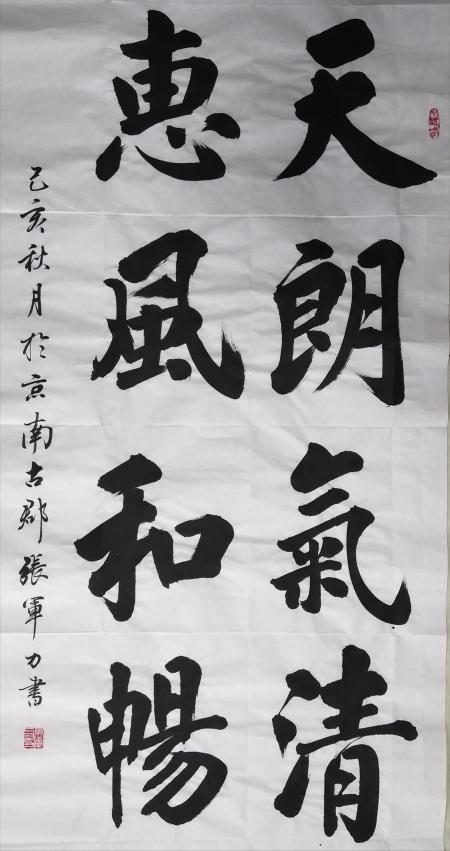 天朗氣清
惠風和暢
己亥秋月於京南古郡張軍力書